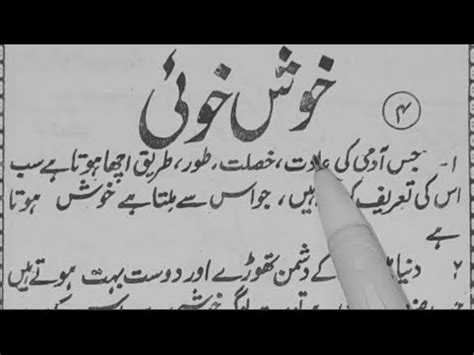 خوش خوئی
۴
۱۔ جس آدمی کی عادت، خصلت، طور، طریق اچھا ہوتا ہے سب
اس کی تعریف ہیں، جو اس سے ملتا ہے خوش ہوتا
ہے
۲ دنیا کے دشمن تھوڑے اور دوست بہت ہوتے ہیں